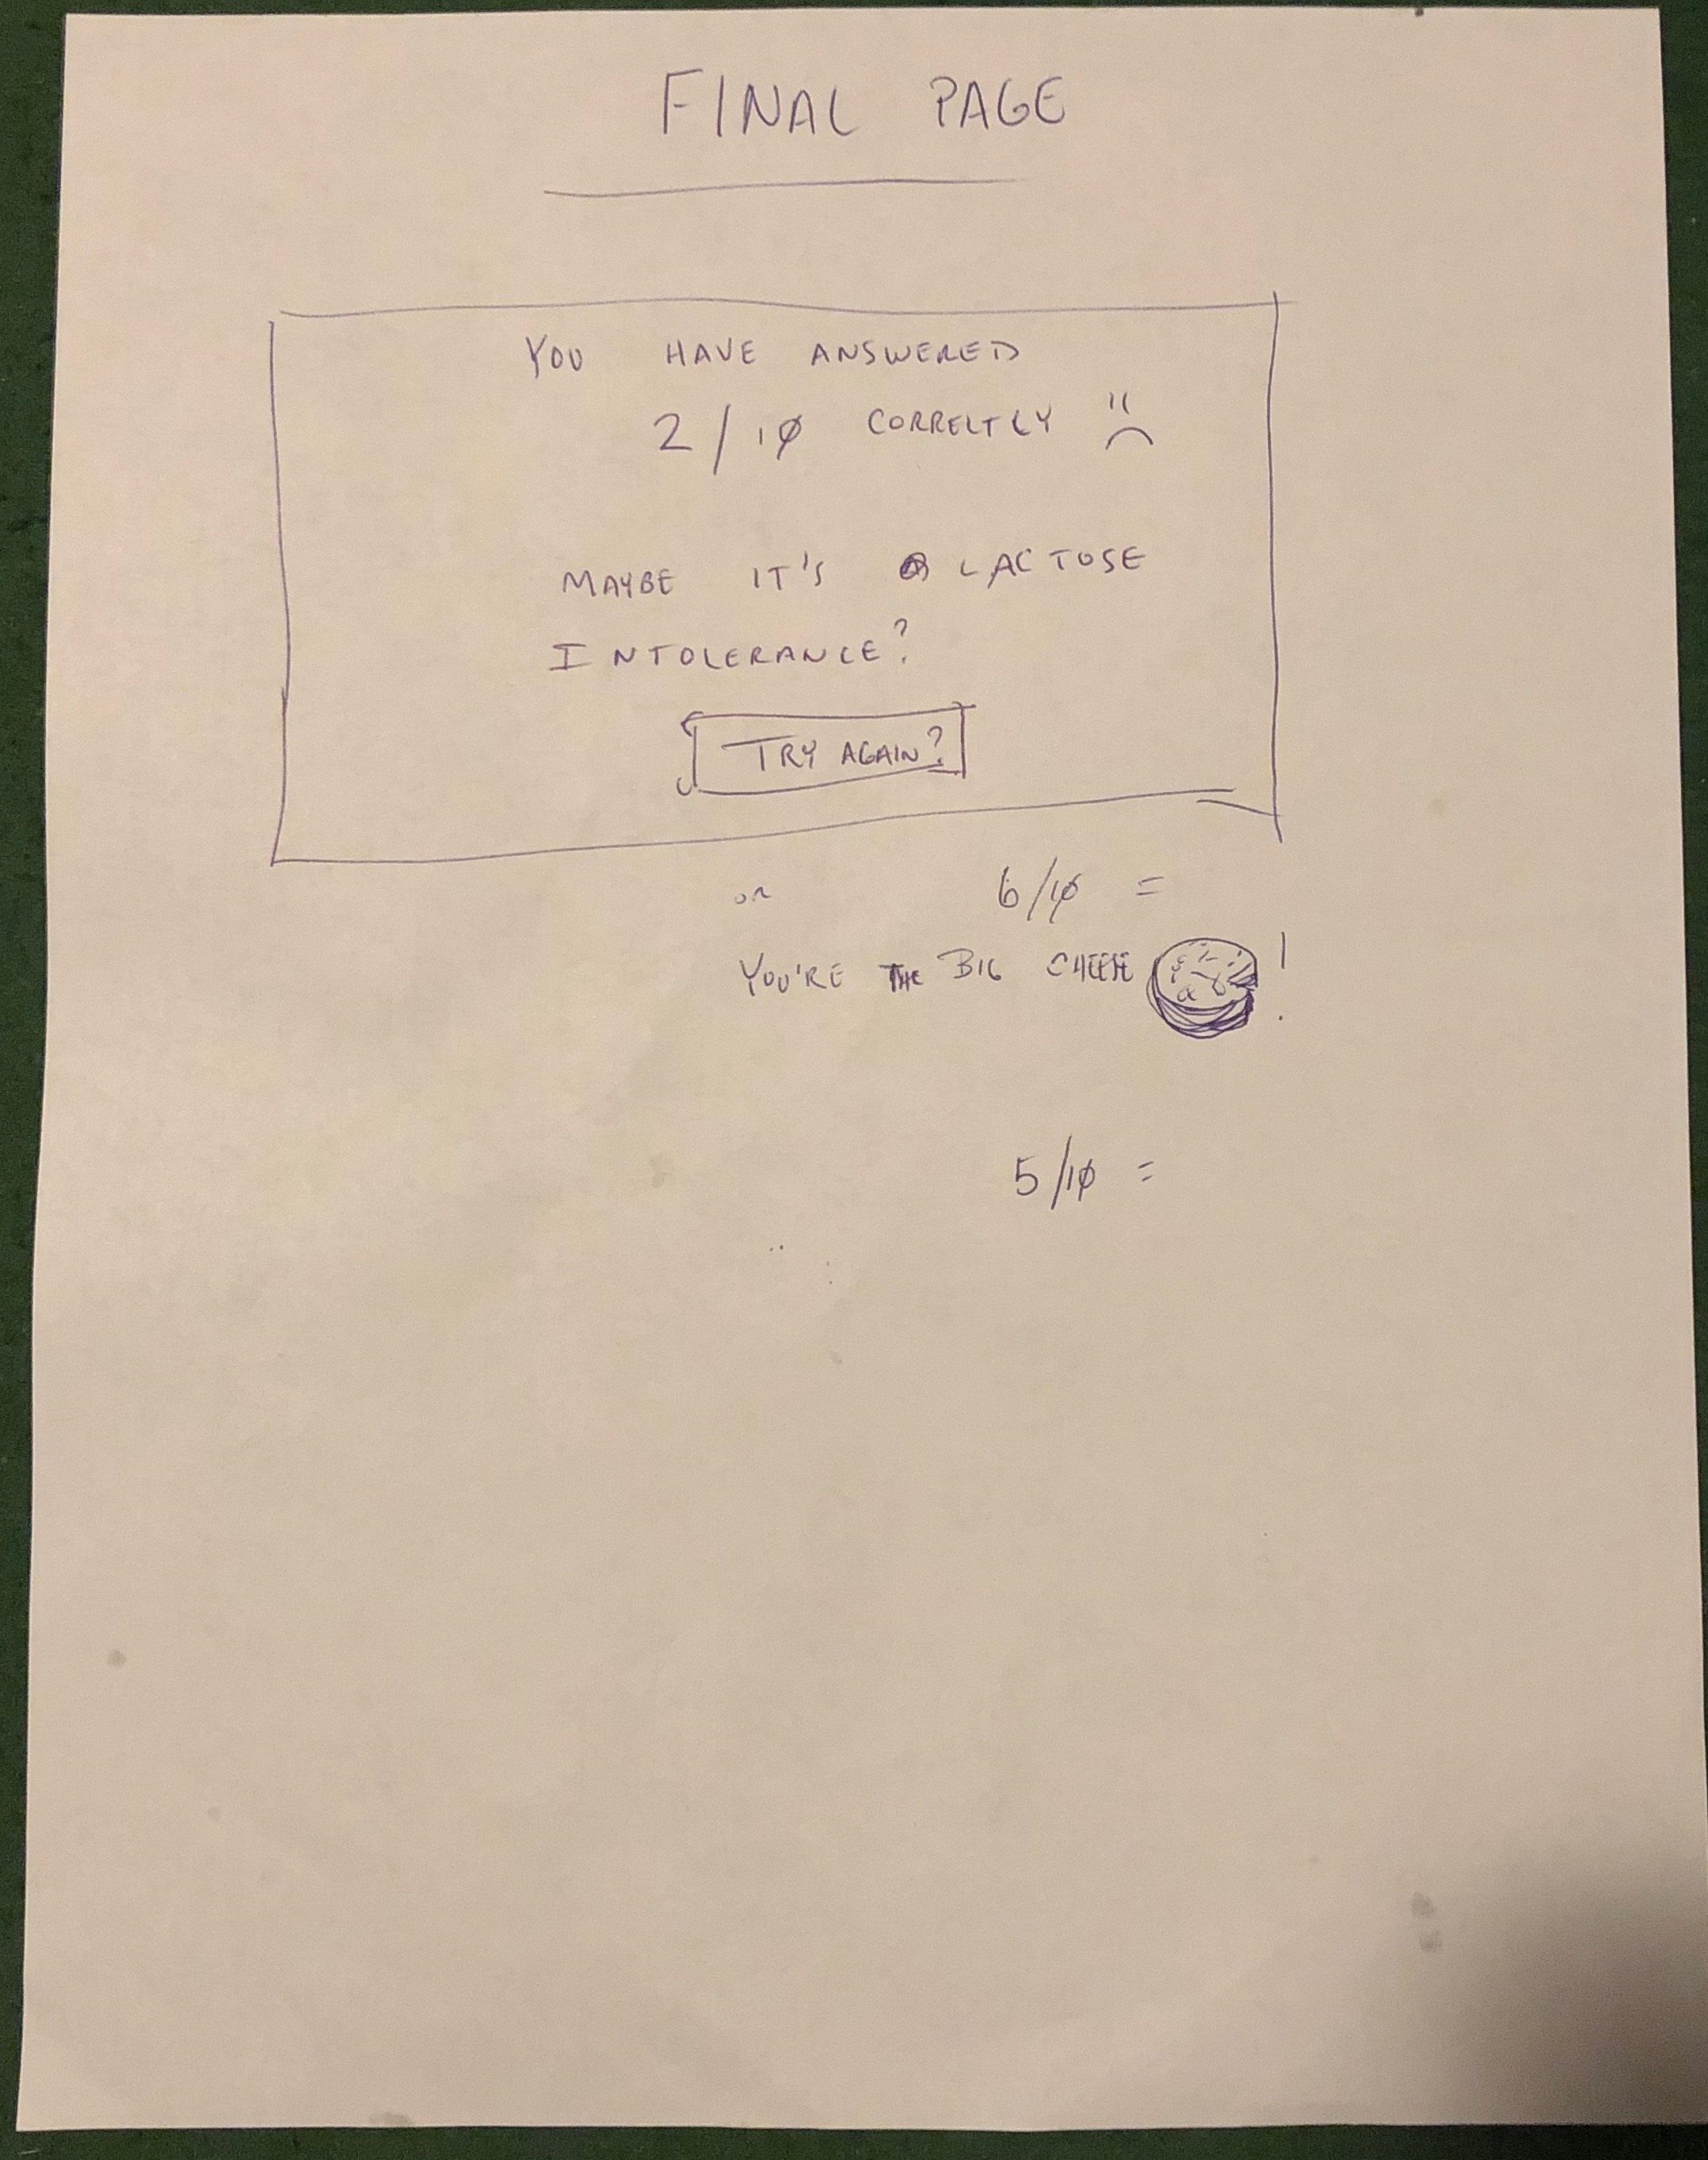 FINAL PAGE
YOU HAVE ANSWERED
2/10 CORRECTLY
MAYBE IT'S LACTOSE
INTOLERANCE?
TRY AGAIN?
or 6/10 =
YOU'RE THE BIG CHEESE !
5/10 =